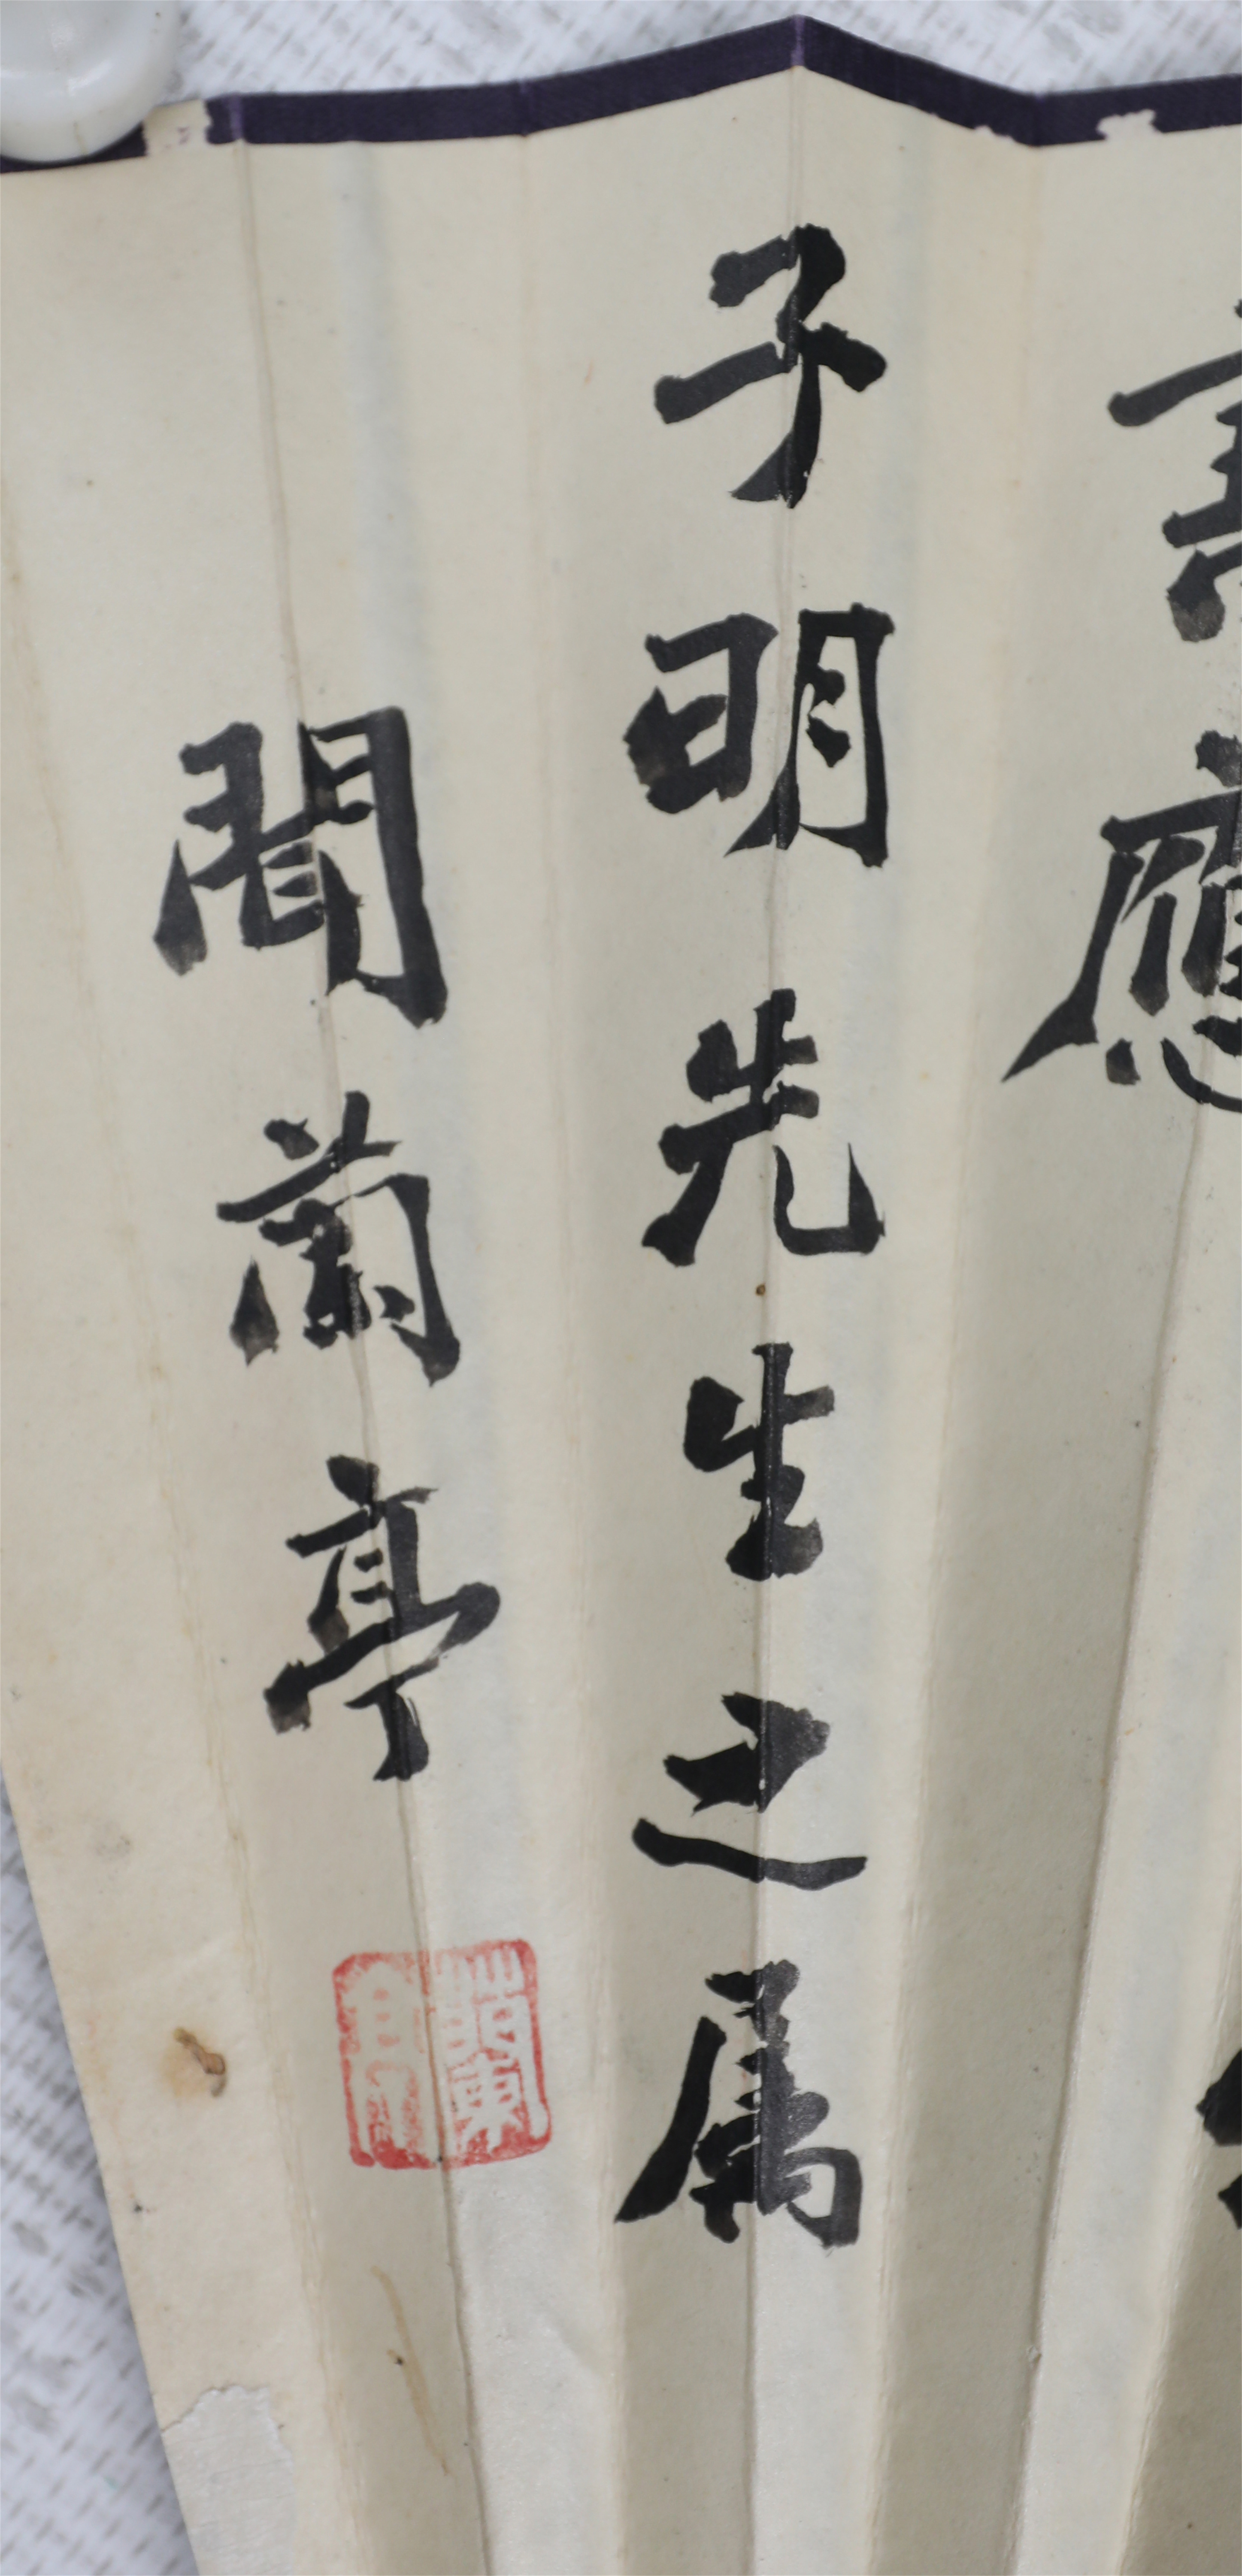 應
子明先生之属
聞蘭亭